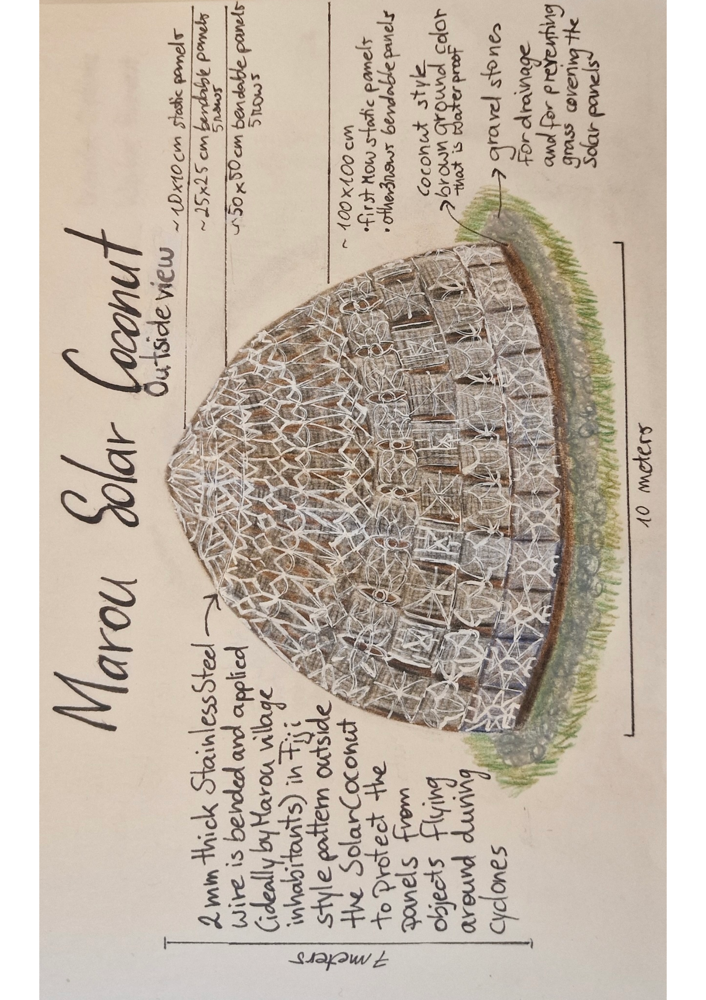 Marou Solar Coconut
Outside view
~10x10 cm static panels
~25x25 cm bendable panels
5 rows
~50x50 cm bendable panels
5 rows
~100x100 cm
• first row static panels
• other rows bendable panels
coconut style
brown ground color
that is waterproof
gravel stones
for drainage
and for preventing
grass covering the
solar panels
2 mm thick Stainless Steel
wire is bended and applied
(ideally by Marou village
inhabitants) in Fiji
style pattern outside
the Solar Coconut
to Protect the
panels from
objects flying
around during
cyclones
7 meters
10 meters